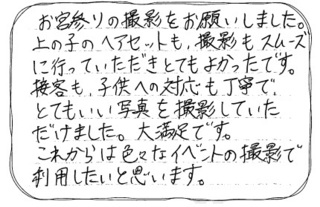 お宮参りの撮影をお願いしました。
上の子のヘアセットも、撮影もスムーズ
に行っていただきとてもよかったです。
接客も、子供への対応も丁寧で、
とてもいい写真を撮影していた
だけました。大満足です。
これからは色々なイベントの撮影で
利用したいと思います。